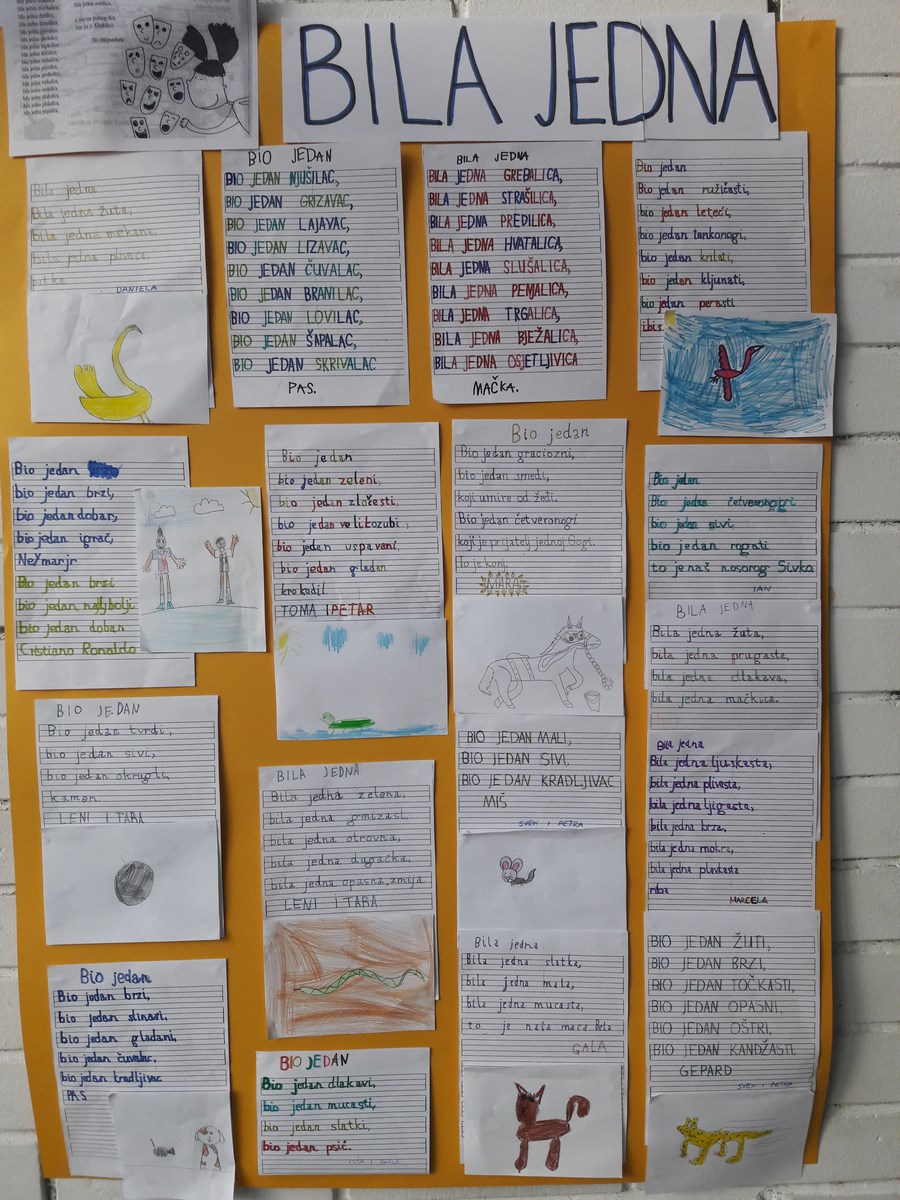 BILA JEDNA
Bila jedna
Bila jedna žuta,
bila jedna mekana,
bila jedna plivača,
patka
DANIELA
BIO JEDAN
BIO JEDAN NJUŠILAC,
BIO JEDAN GRIZAVAC,
BIO JEDAN LAJAVAC,
BIO JEDAN LIZAVAC,
BIO JEDAN ČUVALAC,
BIO JEDAN BRANILAC,
BIO JEDAN LOVILAC,
BIO JEDAN ŠAPALAC,
BIO JEDAN SKRIVALAC
PAS.
BILA JEDNA
BILA JEDNA GREBALICA,
BILA JEDNA STRAŠILICA,
BILA JEDNA PREDILICA,
BILA JEDNA HVATALICA,
BILA JEDNA SLUŠALICA,
BILA JEDNA PENJALICA,
BILA JEDNA TRGALICA,
BILA JEDNA BJEŽALICA,
BILA JEDNA OSJETLJIVICA
MAČKA.
Bio jedan
Bio jedan ružičasti,
bio jedan leteći,
bio jedan tankonogi,
bio jedan krilati,
bio jedan kljunati,
bio jedan perasti
ibis
Bio jedan
bio jedan brzi,
bio jedan dobar,
bio jedan igrač,
Nejmarjr
Bio jedan brzi
bio jedan najbolji
bio jedan dobar
Cristiano Ronaldo
Bio jedan
bio jedan zeleni,
bio jedan zločesti,
bio jedan velikozubi,
bio jedan uspavani,
bio jedan gladan
krokodil
TOMA I PETAR
Bio jedan
Bio jedan graciozni,
bio jedan smeđi,
koji umire od žeti.
Bio jedan četveronogi
koji je prijatelj jednoj Gogi.
To je konj.
MARA
Bio jedan
Bio jedan četveronogi
bio jedan sivi,
bio jedan rogati
to je naš nosorog Sivko
IAN
BILA JEDNA
Bila jedna žuta,
bila jedna prugasta,
bila jedna dlakava,
bila jedna mačkica.
BIO JEDAN
Bio jedan tvrdi,
bio jedan sivi,
bio jedan okrugli,
kamen.
LENI I TARA
BILA JEDNA
Bila jedna zelena,
bila jedna gmizast,
bila jedna otrovna,
bila jedna dugačka,
bila jedna opasna, zmija
LENI I TARA
BIO JEDAN MALI,
BIO JEDAN SIVI,
BIO JEDAN KRADLJIVAC
MIŠ
SVEN I PETRA
Bila jedna
Bila jedna ljuskasta,
bila jedna plivasta,
bila jedna ljigasta,
bila jedna brza,
bila jedna mokra,
bila jedna plavkasta
riba
MARCELA
Bio jedan
Bio jedan brzi,
bio jedan slinavi,
bio jedan gladani,
bio jedan čuvalac,
bio jedan kradljivac
PAS
BIO JEDAN
Bio jedan dlakavi,
bio jedan mucasti,
bio jedan slatki,
bio jedan psić.
Bila jedna
Bila jedna slatka,
bila jedna mala,
bila jedna mucasta,
to je naša maca Bela
GALA
BIO JEDAN ŽUTI,
BIO JEDAN BRZI,
BIO JEDAN TOČKASTI,
BIO JEDAN OPASNI,
BIO JEDAN OŠTRI,
BIO JEDAN KANDŽASTI,
GEPARD
SVEN I PETRA